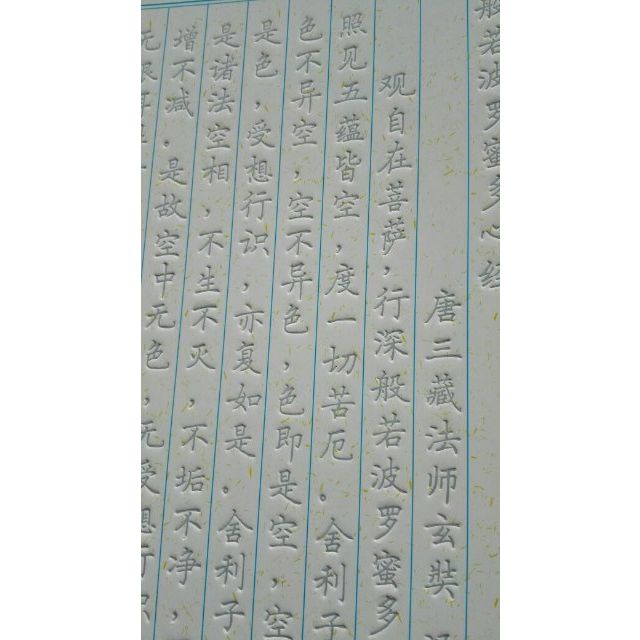 般若波罗蜜多心经
唐三藏法师玄奘
观自在菩萨,行深般若波罗蜜多
照见五蕴皆空,度一切苦厄。舍利子
色不异空,空不异色,色即是空,空
是色,受想行识,亦复如是。舍利子
是诸法空相,不生不灭,不垢不净,
增不减。是故空中无色,无受想行识
无眼耳